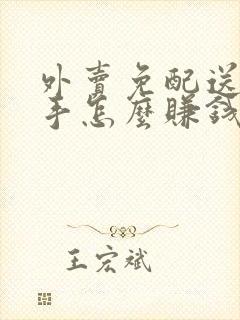 外賣免配送
手怎麼賺錢
王宏斌